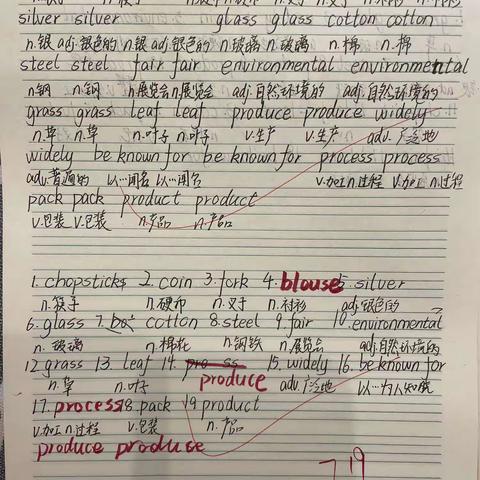 silver silver glass glass cotton cotton
n.银 adj.银色的 n.银 adj.银色的 n.玻璃 n.玻璃 n.棉 n.棉
steel steel fair fair environmental environmental
n.钢 n.钢 n.展览会 n.展览会 adj.自然环境的 adj.自然环境的
grass grass leaf leaf produce produce widely
n.草 n.草 n.叶子 n.叶子 v.生产 v.生产 adv.广泛地
widely be known for be known for process process
adv.普遍的 以…闻名 以…闻名 v.加工 n.过程 v.加工 n.过程
pack pack product product
v.包装 v.包装 n.产品 n.产品
1. chopsticks 2. coin 3. fork 4. blouse 5. silver
n.筷子 n.硬币 n.叉子 n.衬衫 adj.银色的
6. glass 7. cotton 8. steel 9. fair 10. environmental
n.玻璃 n.棉花 n.钢铁 n.展览会 adj.自然环境的
12 grass 13. leaf 14. produce 15. widely 16. be known for
n.草 n.叶子 adv.广泛地 以…为人知晓
17. process 18. pack 19 product
v.加工 n.过程 v.包装 n.产品
produce produse